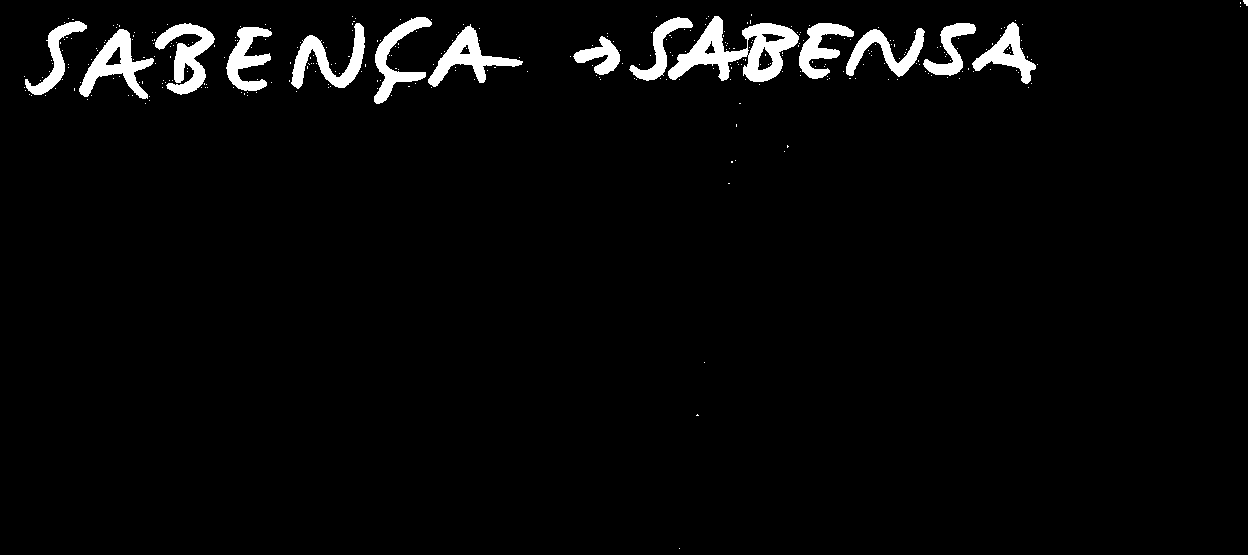 SABENÇA → SABENSA